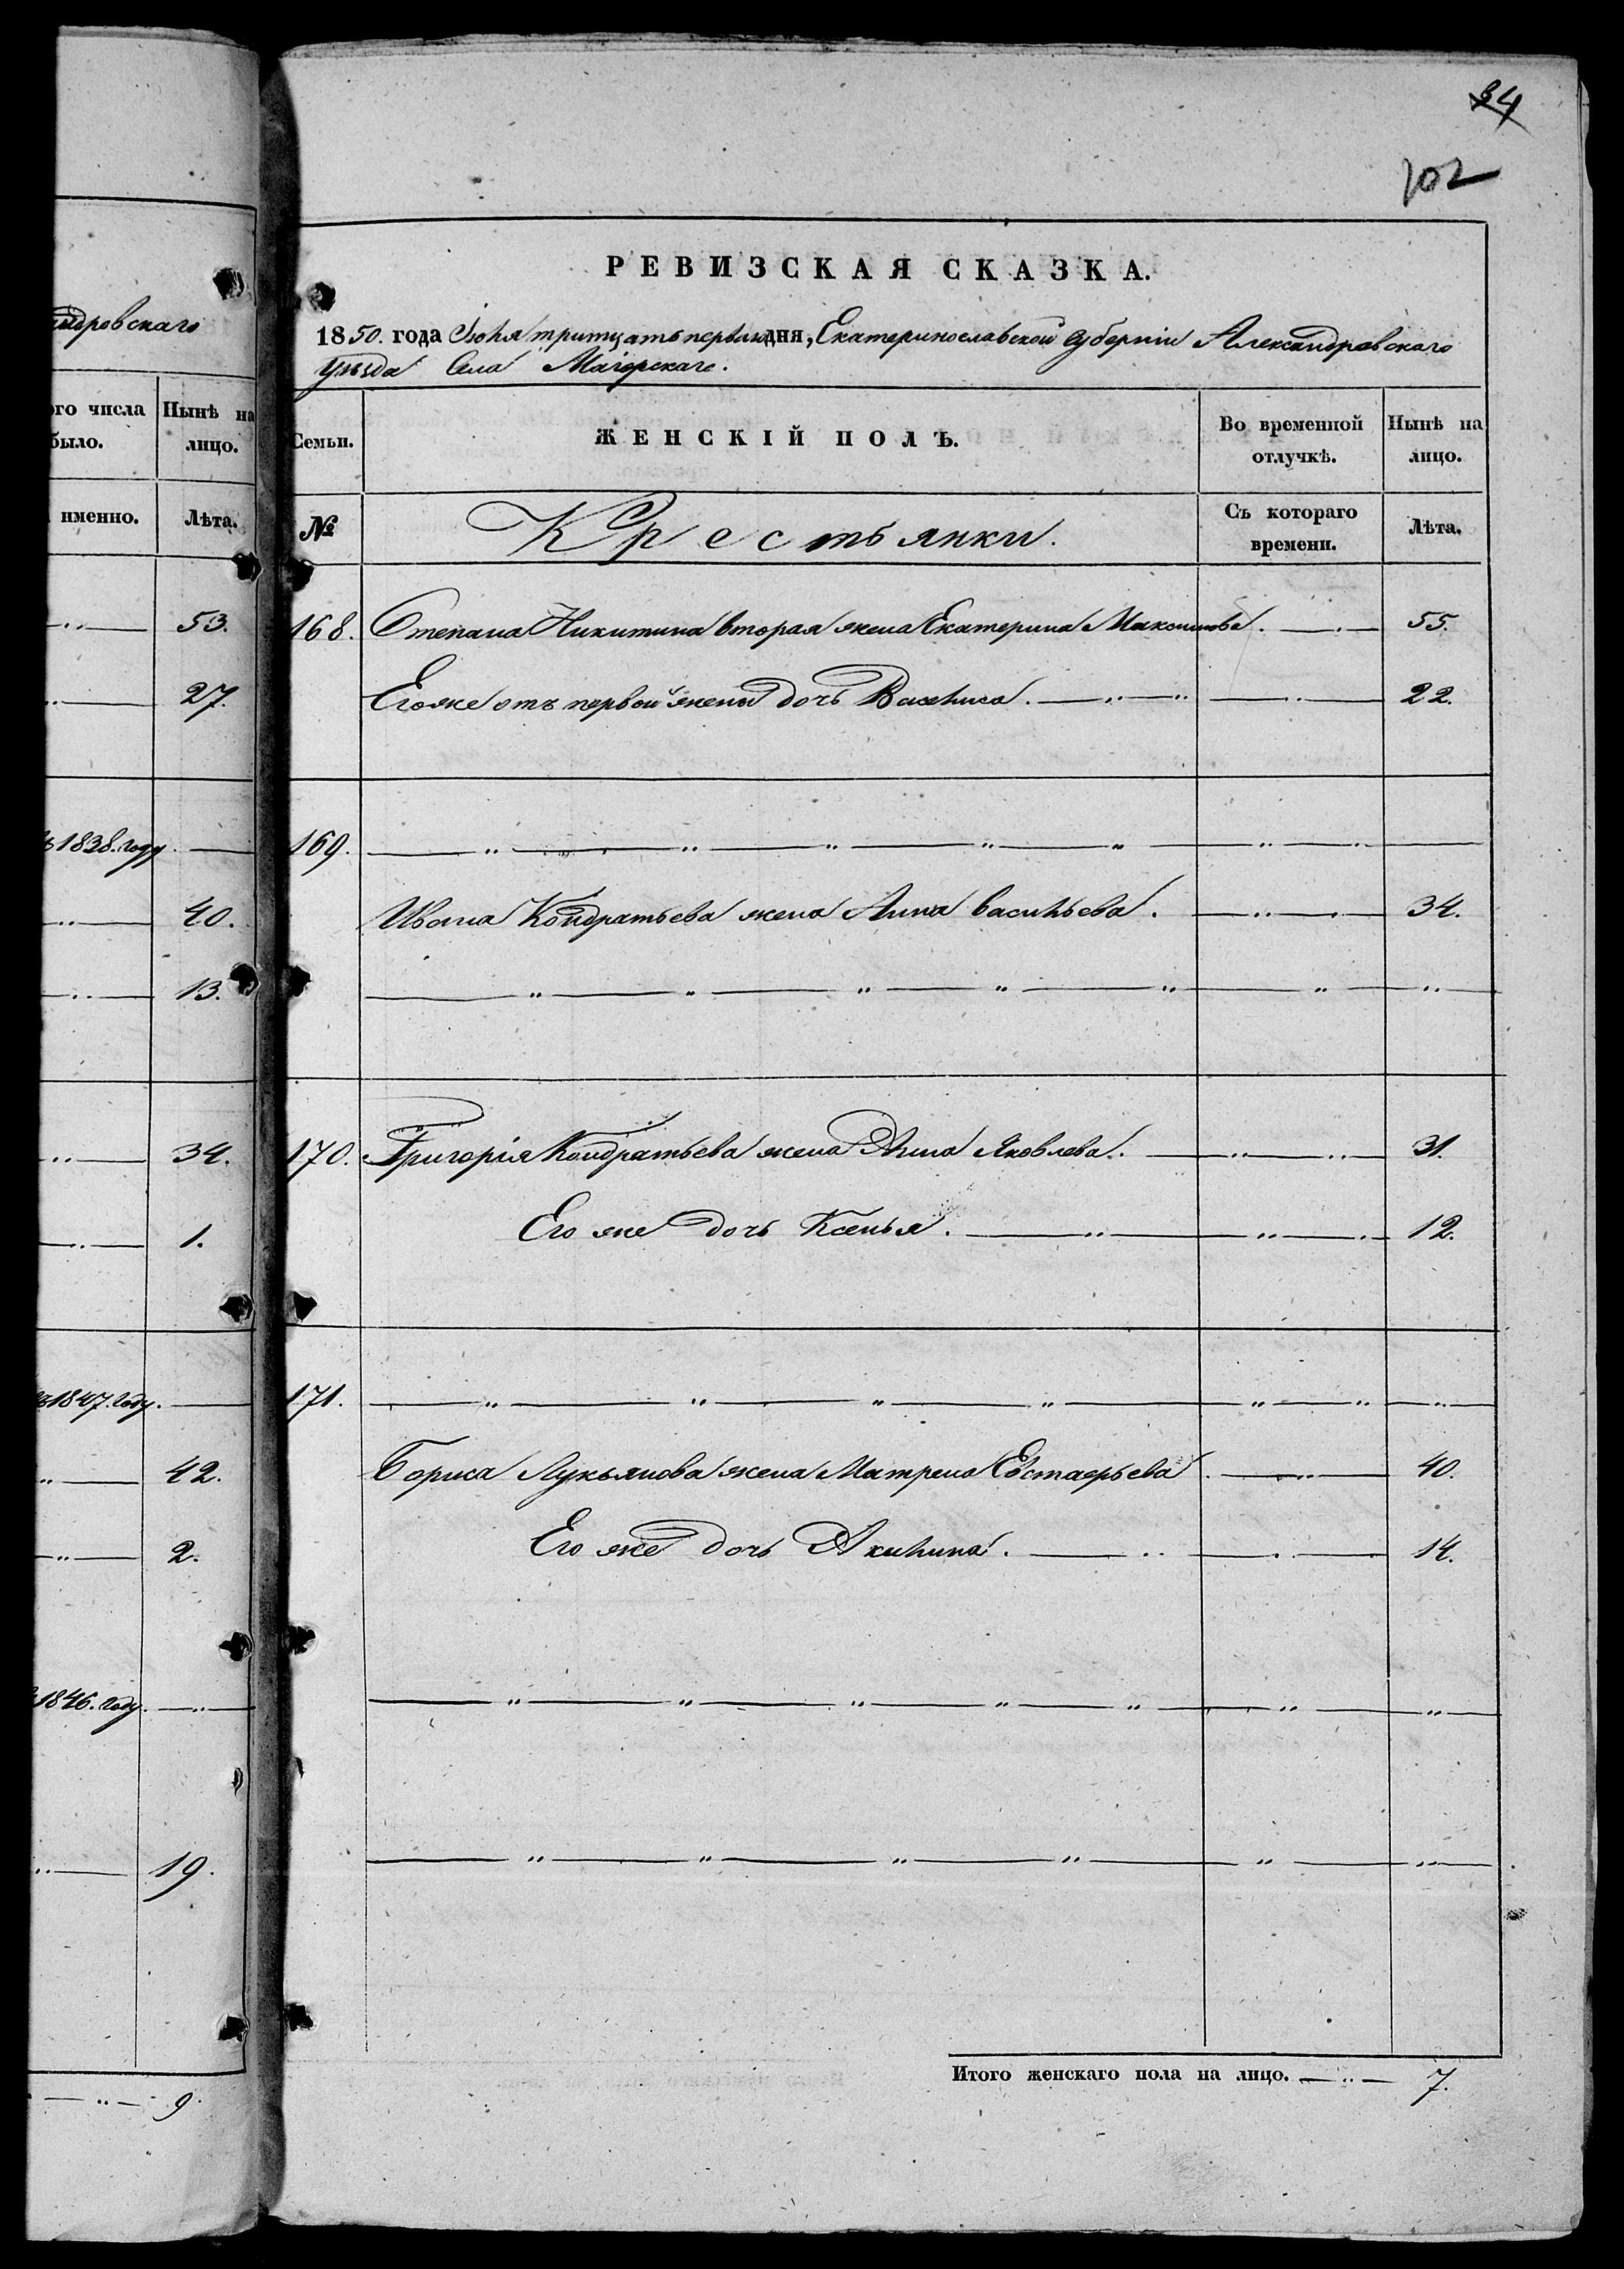 андровскаго
ого числа было. Нынѣ на лицо.
именно. Лѣта.
53.
27.
1838. году.
40.
13.
34.
1.
1847. году.
42.
2.
1846. году.
19.
9.
34
102
РЕВИЗСКАЯ СКАЗКА.
1850. года Іюля тритцать первагодня, Екатеринославской Губерніи Александровскаго
уѣзда Села Маіорскаго.
Семьи. ЖЕНСКІЙ ПОЛЪ. Во временной отлучкѣ. Нынѣ на лицо.
№ Крестьянки. Съ котораго времени. Лѣта.
168. Степана Никитина вторая жена Екатерина Максимова. 55.
Его же отъ первой жены дочь Василиса. 22.
169.
Ивана Кондратьева жена Анна Васильева. 34.
170. Григорія Кондратьева жена Анна Яковлева. 31.
Его же дочь Ксенья. 12.
171.
Бориса Лукьянова жена Матрена Евстафьева 40.
Его же дочь Акилина. 14.
Итого женскаго пола на лицо. 7.